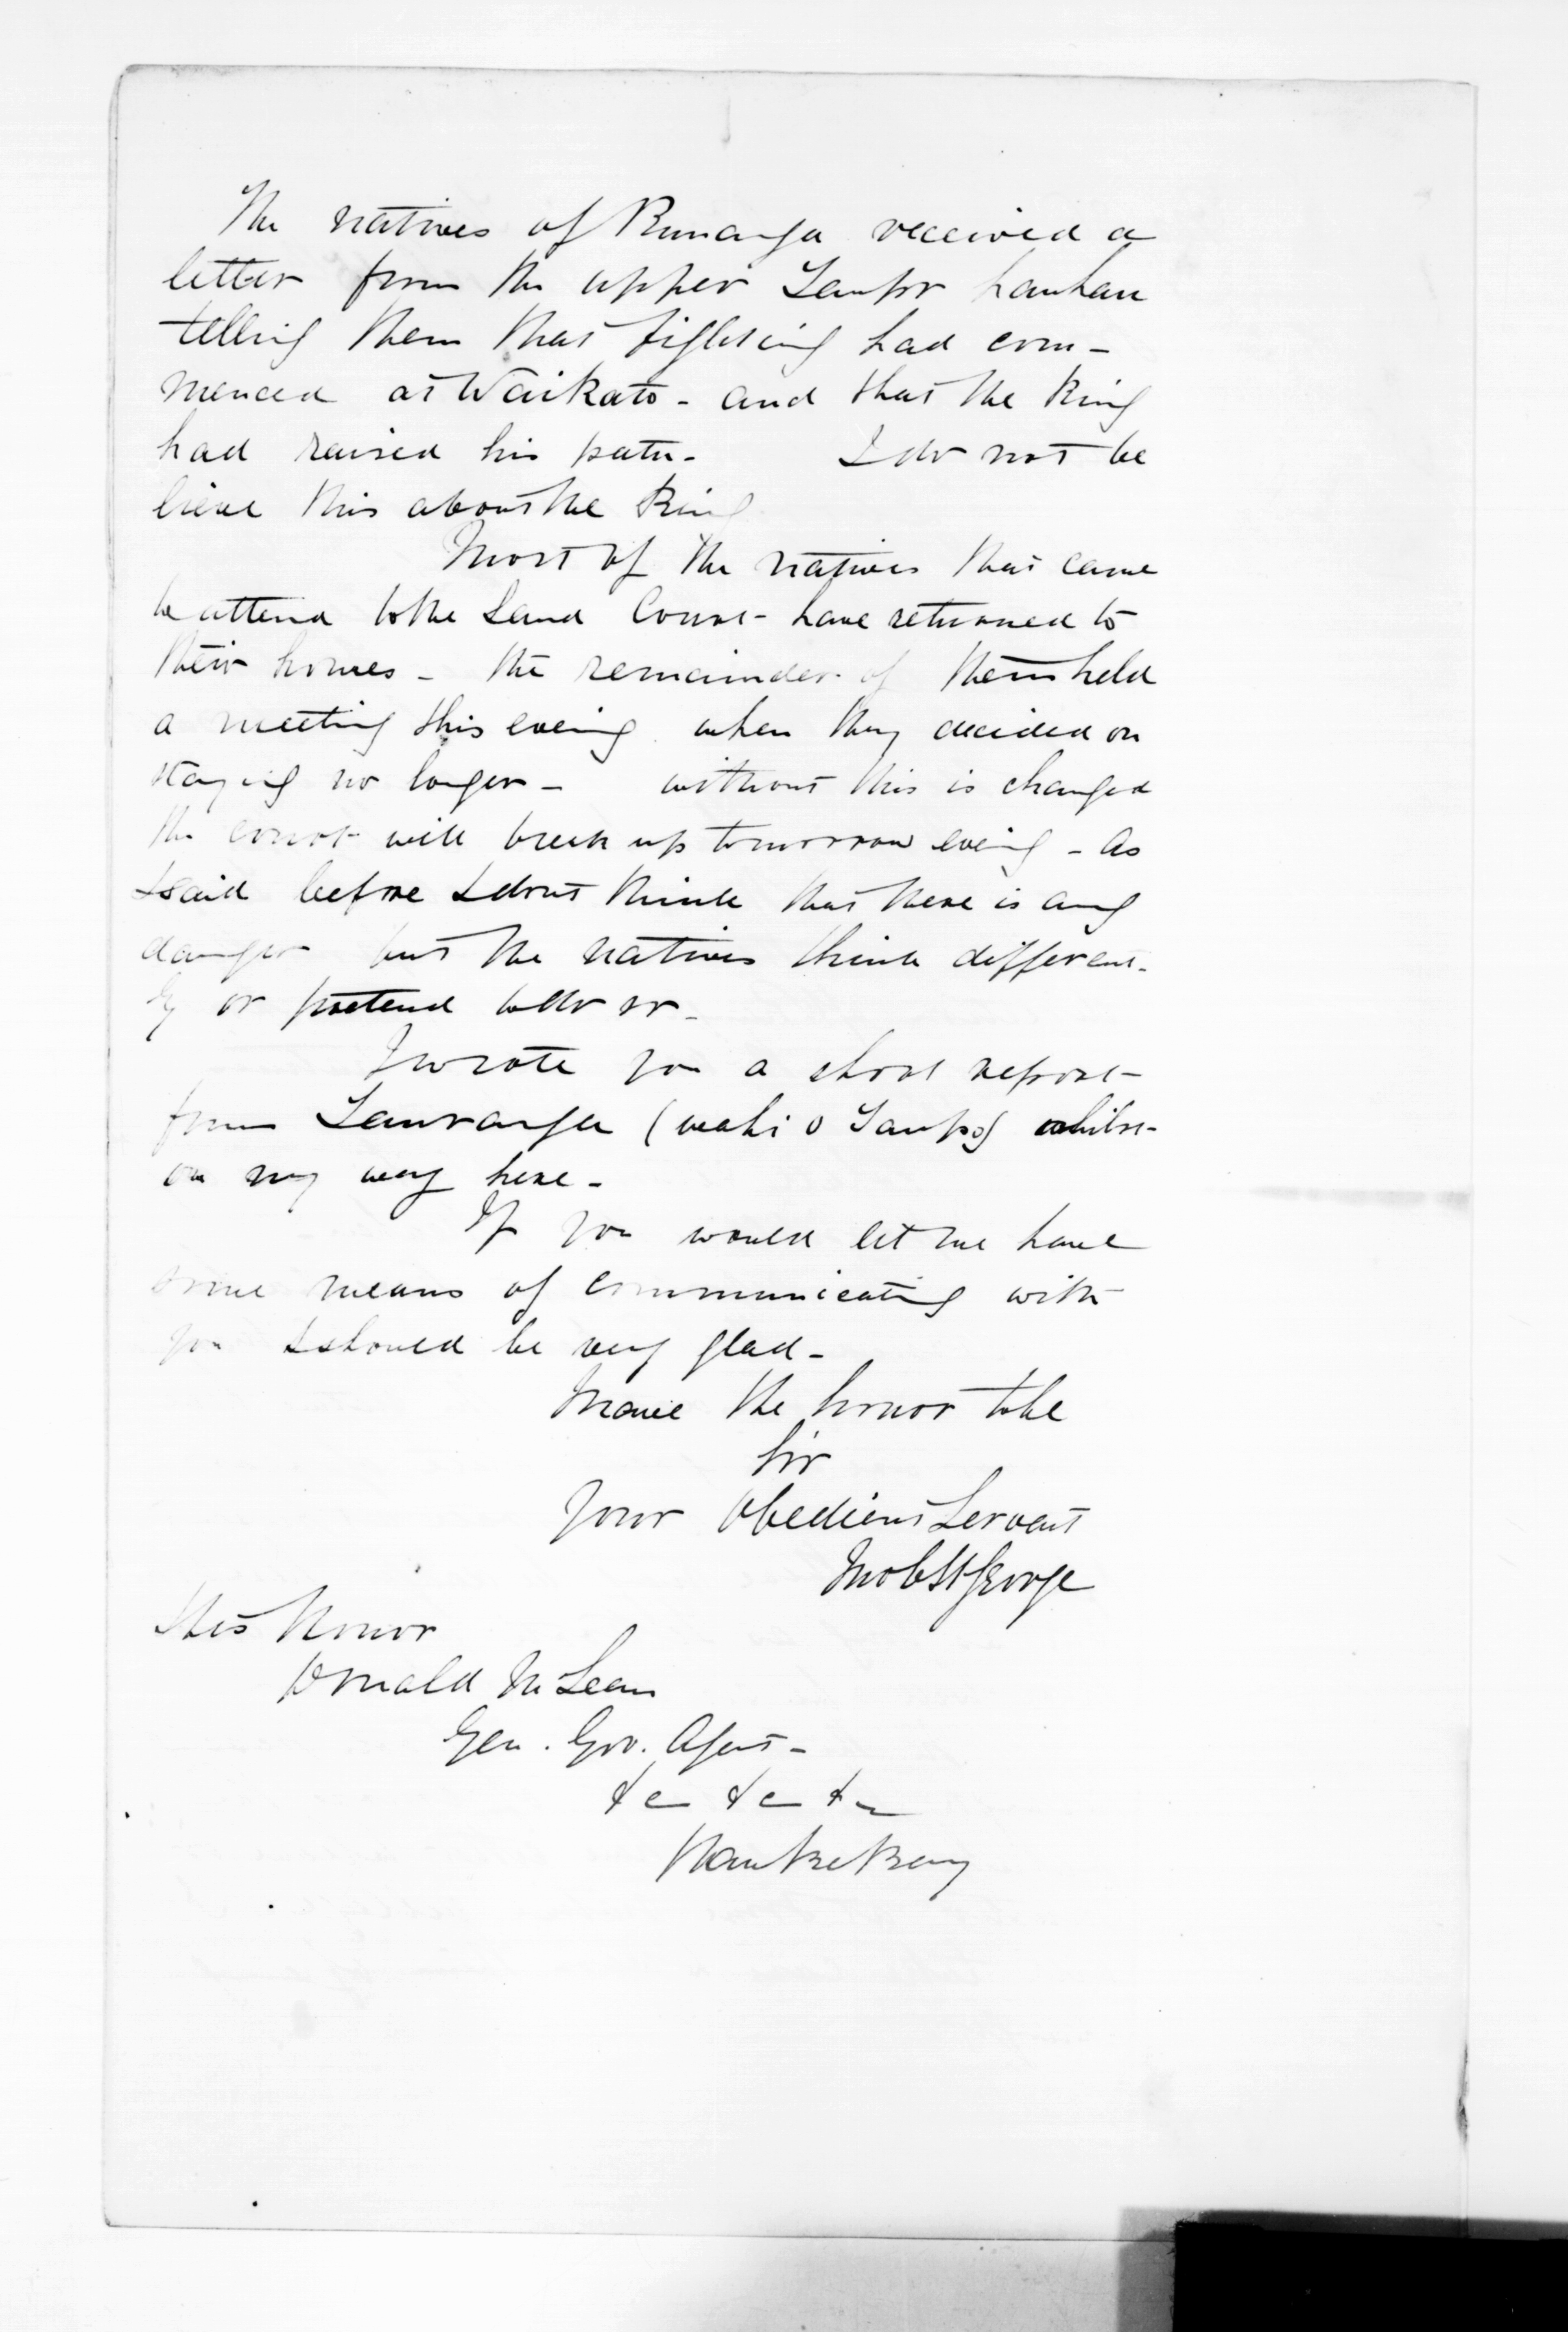 The natives of Runanga received a
letter from the upper Taupo hauhau
telling them that fighting had com-
menced at Waikato - and that the King
had raised his patu - I do not be
lieve this about the King
Most of the natives that came
to attend to the Land Court - have returned to
their homes - the remainder of them held
a meeting this evening when they decided on
staying no longer - without this is changed
the court will break up tomorrow evening - As
I said before I dont think that there is any
danger but the natives think different-
ly or pretend to do so -
I wrote you a short report
from Tauranga (wahi o Taupo) whilst
on my way here -
If you would let me have
some means of communicating with
you I should be very glad -
I have the honor to be
Sir
Your Obedient Servant
Jno C St George
His Honor
Donald McLean
Gen. Gov. Agent -
&c &c &c
Hawke Bay